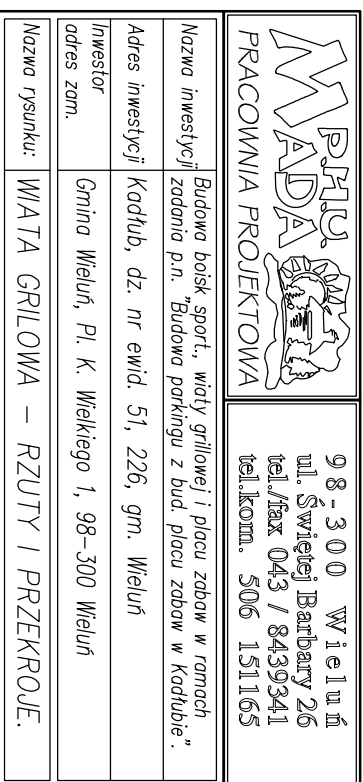 P.H.U.
MADA
PRACOWNIA PROJEKTOWA
98-300 Wieluń
ul. Świętej Barbary 26
tel./fax 043 / 8439341
tel.kom. 506 151165
Nazwa inwestycji
Budowa boisk sport., wiaty grillowej i placu zabaw w ramach
zadania p.n. "Budowa parkingu z bud. placu zabaw w Kadłubie".
Adres inwestycji
Kadłub, dz. nr ewid. 51, 226, gm. Wieluń
Inwestor
adres zam.
Gmina Wieluń, Pl. K. Wielkiego 1, 98-300 Wieluń
Nazwa rysunku:
WIATA GRILOWA - RZUTY I PRZEKROJE.